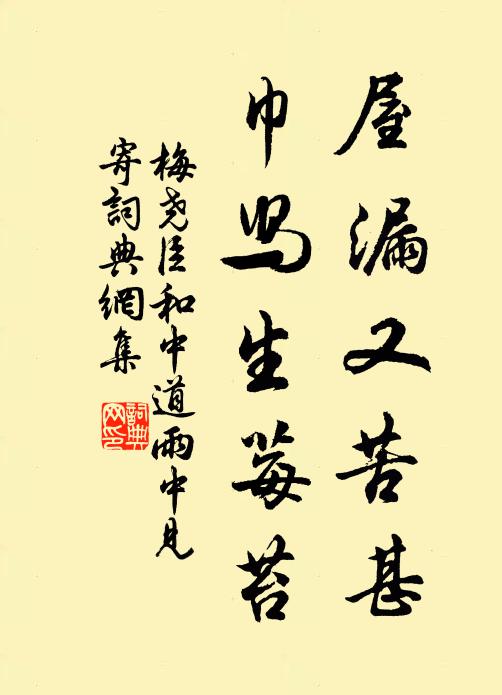 屋漏又苦甚
巾舄生莓苔
梅尧臣和中道雨中見
寄詞典網集
詞典
网印